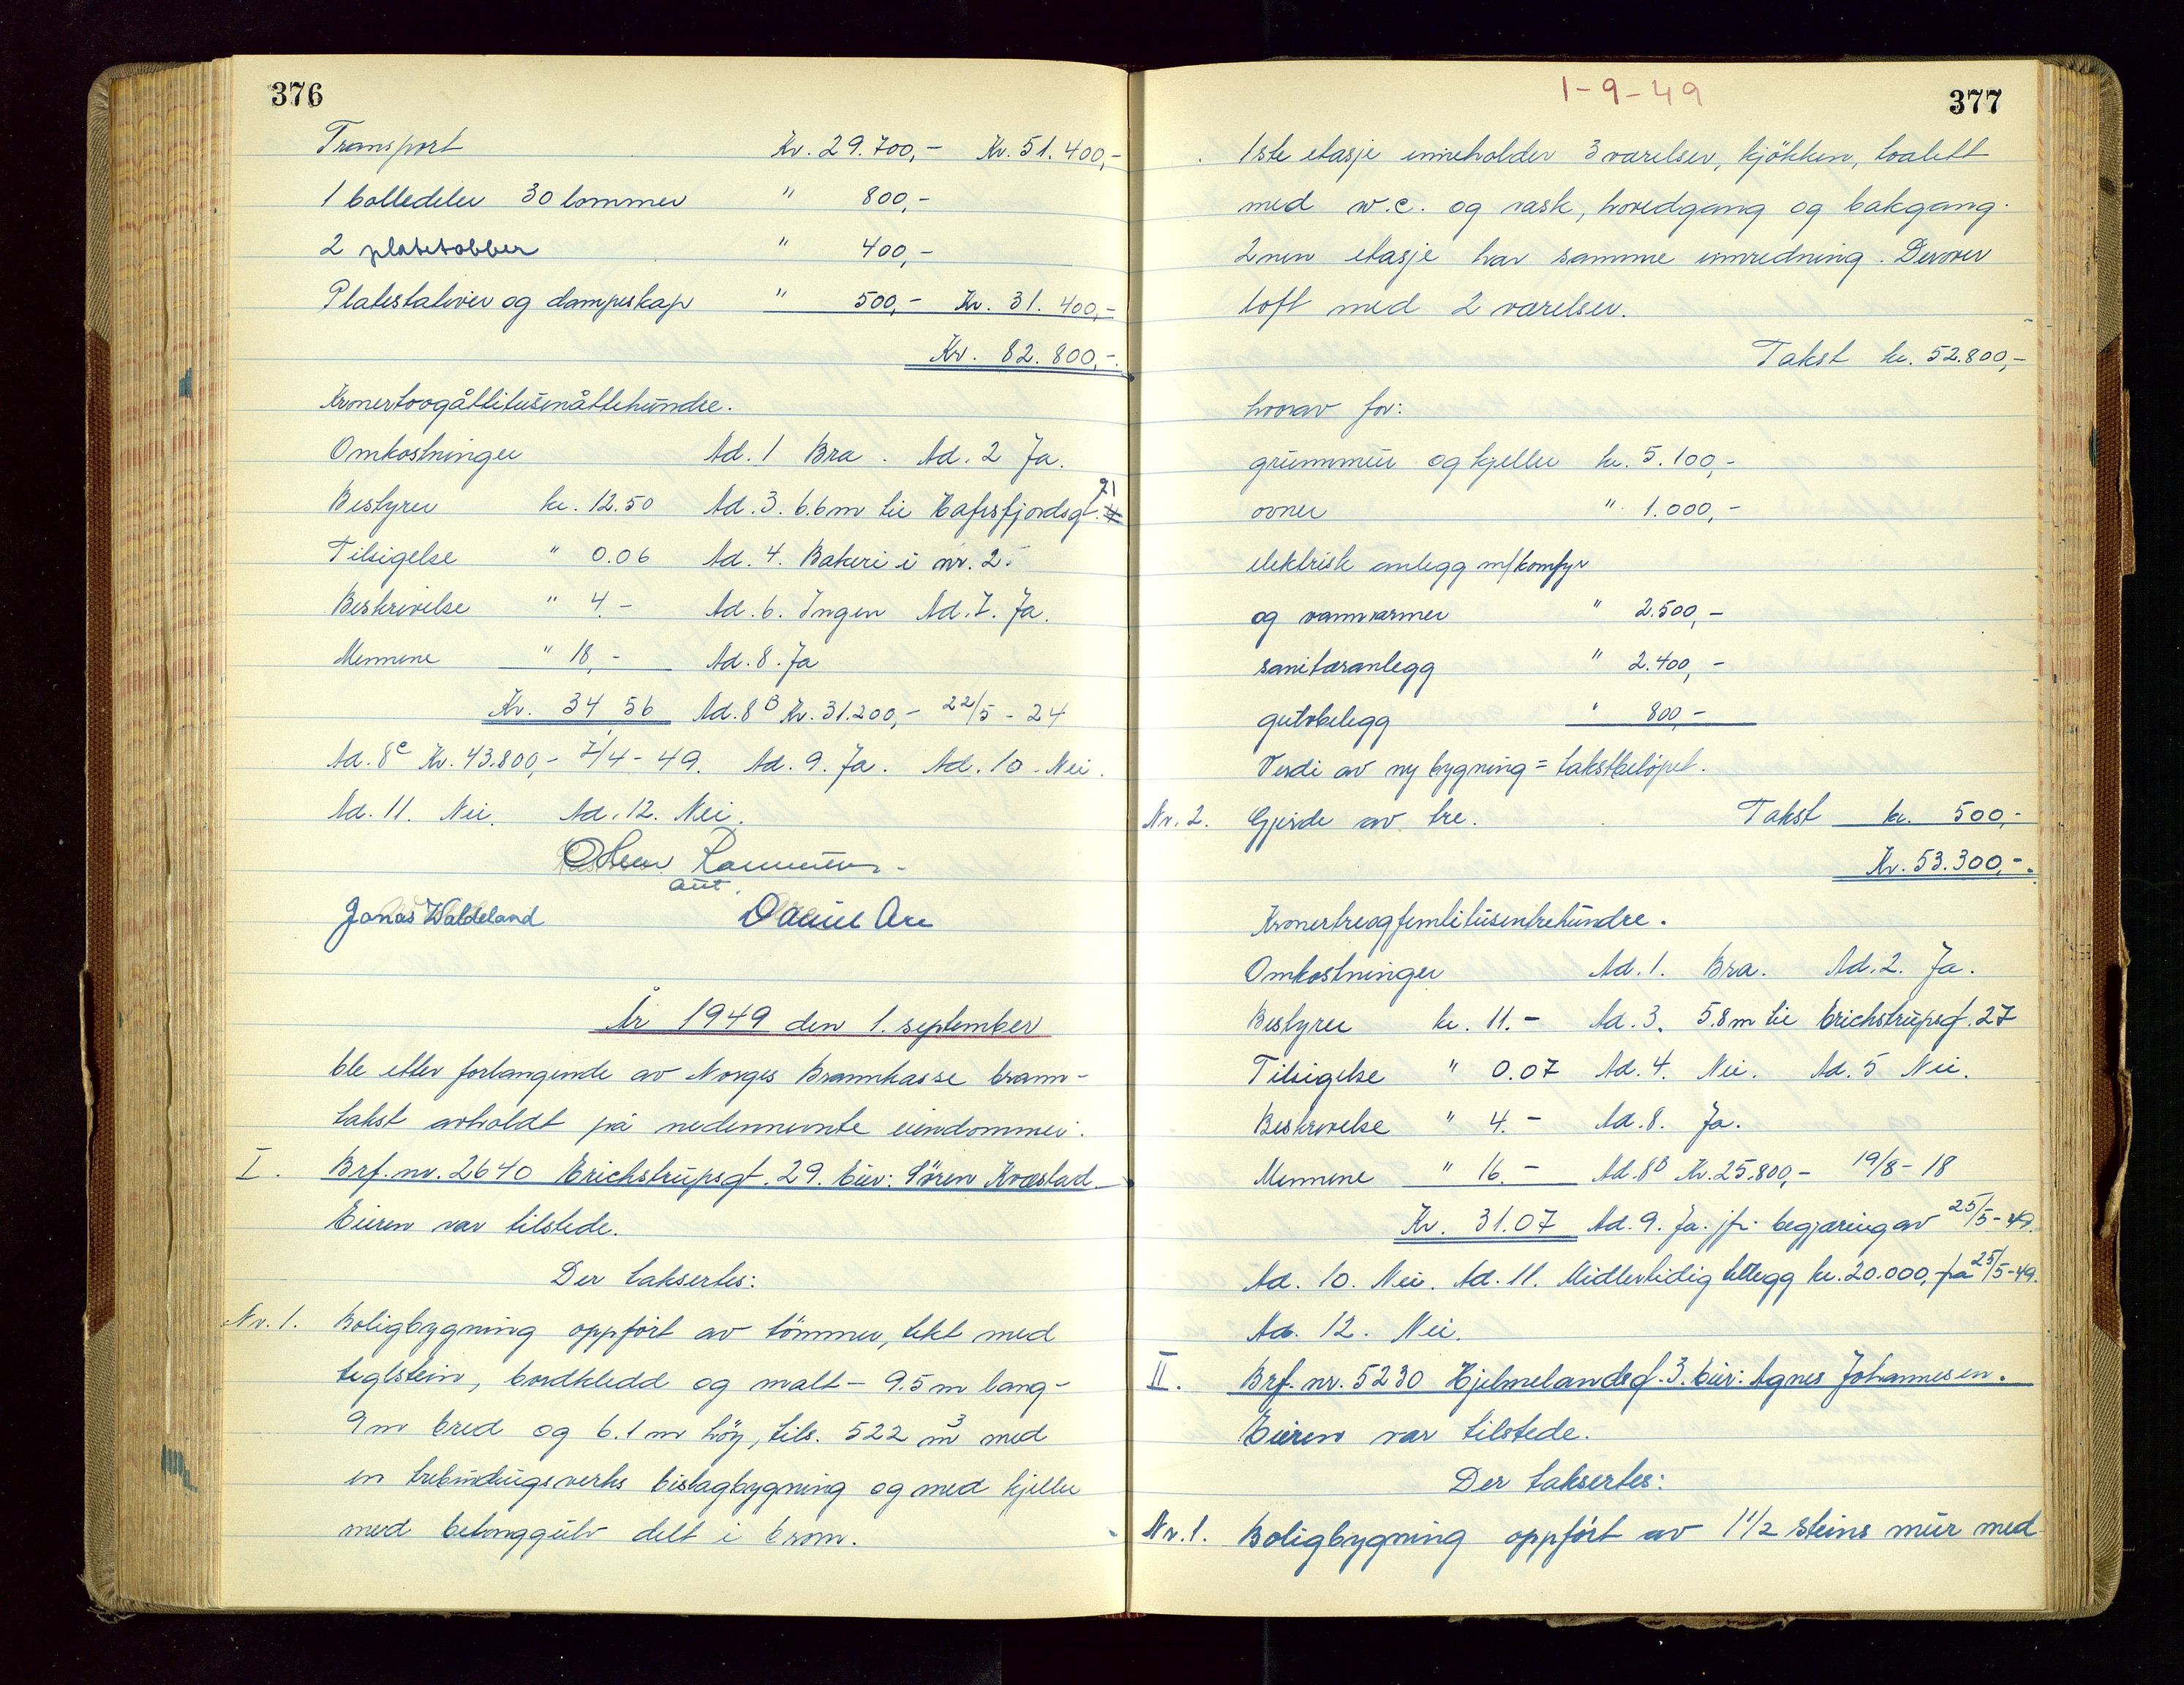 376
Transport Kr. 29.700,- Kr. 51.400,-
1 bolledeler 30 lommer " 800,-
2 platetobber " 400,-
Platestativer og dampskap " 500,- Kr. 31.400,-
Kr. 82.800,-
Kronertoogåttitusenåttehundre.
Omkostninger Ad. 1 Bra. Ad. 2 Ja.
Bestyrer kr. 12.50 Ad. 3. 6.6m til Hafrsfjordsgt. 21
Tilsigelse " 0.06 Ad. 4. Bakeri i nr. 2.
Beskrivelse " 4.- Ad. 6. Ingen Ad. 7. Ja.
Mennene " 18,- Ad. 8. Ja
Kr. 34 56 Ad. 8B Kr. 31.200,- 22/5 - 24
Ad. 8c Kr. 43.800,- 7/4 - 49. Ad. 9. Ja. Ad. 10. Nei.
Ad. 11. Nei. Ad. 12. Nei.
Rasmussen
aut.
Jonas Waldeland Daniel Are
År 1949 den 1. september
ble etter forlangende av Norges Brannkasse brann-
takst avholdt på nedennevnte eiendommer.
I. Brf. nr. 2640 Erichstrupsgt. 29. Eier: Sören Kvæstad.
Eieren var tilstede.
Der taksertes:
Nr. 1. Boligbygning oppfört av tömmer, tekt med
teglstein, bordkledd og malt - 9.5 m lang -
9 m bred og 6.1 m höy, tils. 522 m3 med
en trebindingsverks bislagbygning og med kjeller
med betonggulv delt i 6 rom.
1-9-49
377
1ste etasje inneholder 3 værelser, kjökken, toalett
med w.c. og vask, hovedgang og bakgang.
2nen etasje har samme innredning. Derover
loft med 2 værelser.
Takst kr. 52.800,-
hvorav for:
grunnmur og kjeller kr. 5.100,-
ovner " 1.000,-
elektrisk anlegg m/komfyr
og vannvarmer " 2.500,-
sanitæranlegg " 2.400,-
gulvbelegg " 800,-
Verdi av ny bygning = takstbelöpet.
Nr. 2. Gjerde av tre. Takst kr. 500,-
Kr. 53.300,-
Kronertreogfemtitusentrehundre.
Omkostninger Ad. 1. Bra. Ad. 2. Ja.
Bestyrer kr. 11.- Ad. 3. 5.8m til Erichstrupsgt. 27
Tilsigelse " 0.07 Ad. 4. Nei. Ad. 5 Nei.
Beskrivelse " 4.- Ad. 8. Ja.
Mennene " 16.- Ad. 8B Kr. 25.800,- 19/8 - 18
Kr. 31.07 Ad. 9. Ja. jfr. begjæring av 25/5 - 49.
Ad. 10. Nei. Ad. 11. Midlertidig tillegg kr. 20.000,- fra 25/5 - 49.
Ad. 12. Nei.
II. Brf. nr. 5230 Hjelmelandsgt. 3. Eier: Agnes Johannesen.
Eieren var tilstede.
Der taksertes:
Nr. 1. Boligbygning oppfört av 1 1/2 steins mur med